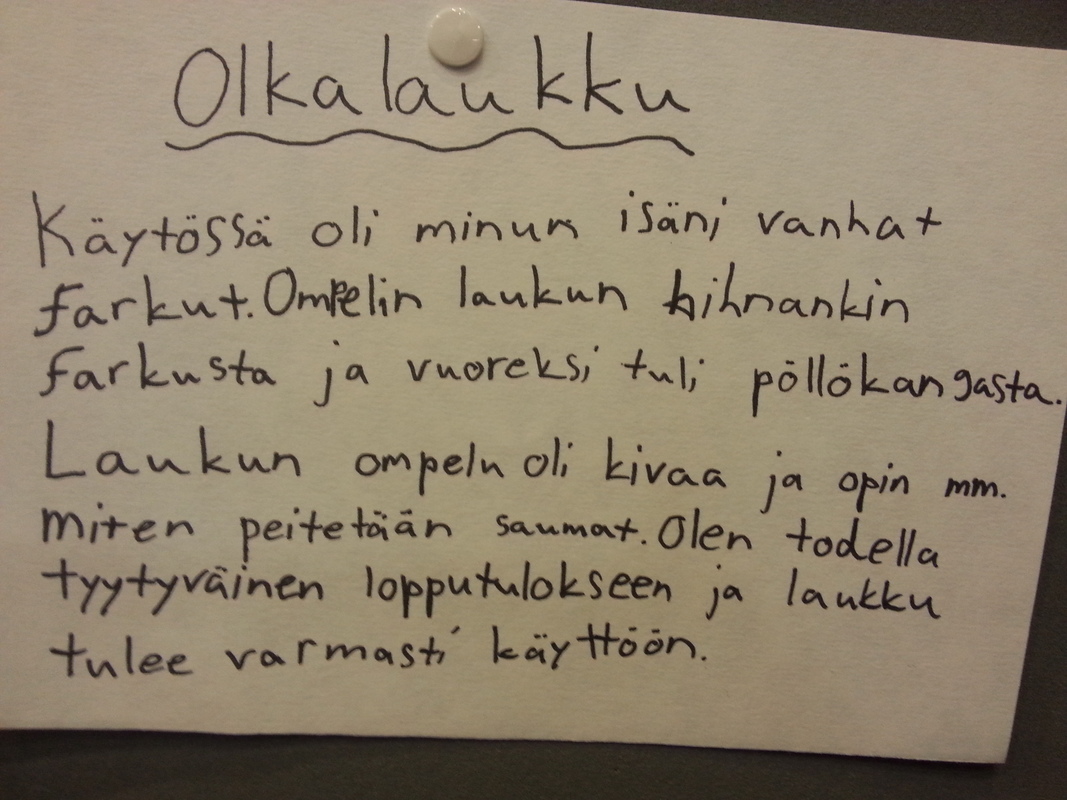 Olkalaukku
Käytössä oli minun isäni vanhat
farkut. Ompelin laukun hihnankin
farkusta ja vuoreksi tuli pöllökangasta.
Laukun ompelu oli kivaa ja opin mm.
miten peitetään saumat. Olen todella
tyytyväinen lopputulokseen ja laukku
tulee varmasti käyttöön.